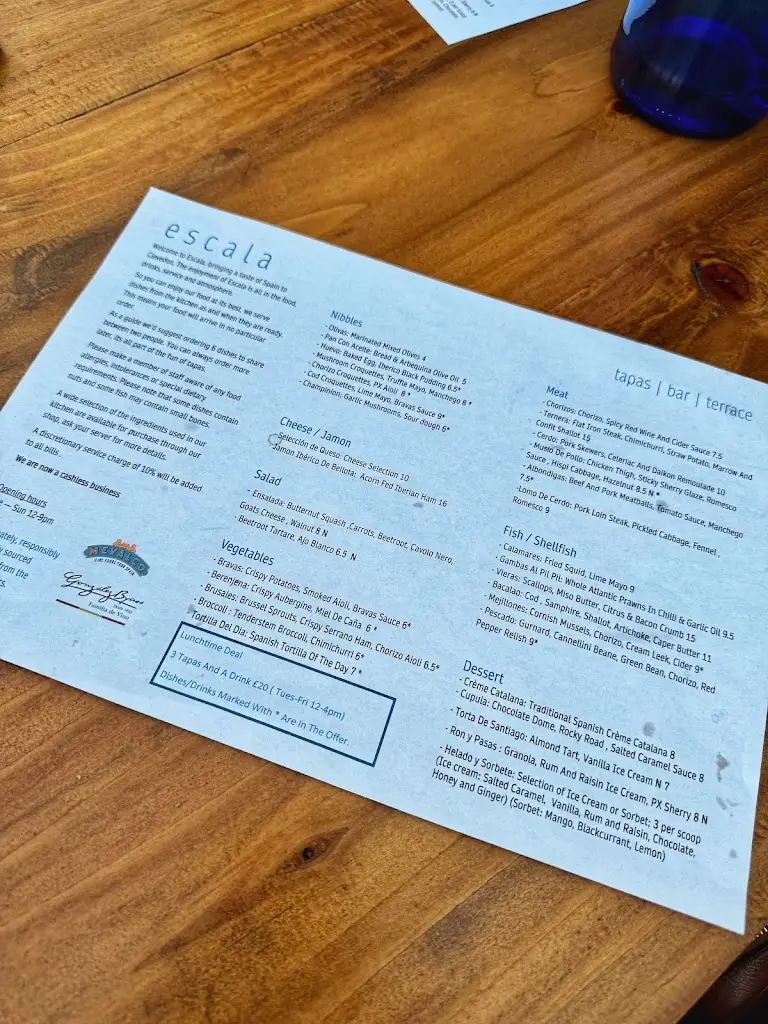 escala
Welcome to Escala, bringing a taste of Spain to
Clevedon. The enjoyment of Escala is all in the food,
drinks, service and atmosphere.
So you can enjoy our food at its best, we serve
dishes from the kitchen as and when they are ready.
This means your food will arrive in no particular
order.
As a guide we'll suggest ordering 6 dishes to share
between two people. You can always order more
later, its all part of the fun of tapas.
Please make a member of staff aware of any food
allergies, intolerances or special dietary
requirements. Please note that some dishes contain
nuts and some fish may contain small bones.
A wide selection of the ingredients used in our
kitchen are available for purchase through our
shop, ask your server for more details.
A discretionary service charge of 10% will be added
to all bills.
We are now a cashless business
Opening hours
– Sun 12-9pm
ately, responsibly
y sourced
from the
s.
MEVALCO
González Byass
Familia de Vino
Nibbles
- Olivas: Marinated Mixed Olives 4
- Pan Con Aceite: Bread & Arbequina Olive Oil 5
- Huevo: Baked Egg, Iberico Black Pudding 6.5*
- Mushroom Croquettes, Truffle Mayo, Manchego 8 *
- Chorizo Croquettes, PX Aioli 8 *
- Cod Croquettes, Lime Mayo, Bravas Sauce 9*
- Champinon; Garlic Mushrooms, Sour dough 6*
Cheese / Jamon
Selección de Queso: Cheese Selection 10
Jamón Ibérico De Bellota: Acorn Fed Iberian Ham 16
Salad
- Ensalada: Butternut Squash ,Carrots, Beetroot, Cavolo Nero,
Goats Cheese , Walnut 8 N
- Beetroot Tartare, Ajo Blanco 6.5 N
Vegetables
- Bravas: Crispy Potatoes, Smoked Aioli, Bravas Sauce 6*
- Berenjena: Crispy Aubergine, Miel De Caña 6 *
- Brusales: Brussel Sprouts, Crispy Serrano Ham, Chorizo Aioli 6.5*
- Broccoli : Tenderstem Broccoli, Chimichurri 6*
Tortilla Del Dia: Spanish Tortilla Of The Day 7 *
Lunchtime Deal
3 Tapas And A Drink £20 ( Tues-Fri 12-4pm)
Dishes/Drinks Marked With * Are In The Offer.
tapas | bar | terrace
Meat
- Chorizos: Chorizo, Spicy Red Wine And Cider Sauce 7.5
- Ternera: Flat Iron Steak, Chimichurri, Straw Potato, Marrow And
Confit Shallot 15
- Cerdo: Pork Skewers, Celeriac And Daikon Remoulade 10
- Muslo De Pollo: Chicken Thigh, Sticky Sherry Glaze, Romesco
Sauce , Hispi Cabbage, Hazelnut 8.5 N *
- Albondigas: Beef And Pork Meatballs, Tomato Sauce, Manchego
7.5*
-Lomo De Cerdo: Pork Loin Steak, Pickled Cabbage, Fennel ,
Romesco 9
Fish / Shellfish
- Calamares: Fried Squid, Lime Mayo 9
- Gambas Al Pil Pil: Whole Atlantic Prawns In Chilli & Garlic Oil 9.5
- Vieras: Scallops, Miso Butter, Citrus & Bacon Crumb 15
- Bacalao: Cod , Samphire, Shallot, Artichoke, Caper Butter 11
- Mejillones: Cornish Mussels, Chorizo, Cream Leek, Cider 9*
- Pescado: Gurnard, Cannellini Beane, Green Bean, Chorizo, Red
Pepper Relish 9*
Dessert
- Crème Catalana: Traditional Spanish Crème Catalana 8
- Cupula: Chocolate Dome, Rocky Road , Salted Caramel Sauce 8
- Torta De Santiago: Almond Tart, Vanilla Ice Cream N 7
- Ron y Pasas : Granola, Rum And Raisin Ice Cream, PX Sherry 8 N
- Helado y Sorbete: Selection of Ice Cream or Sorbet; 3 per scoop
(Ice cream: Salted Caramel, Vanilla, Rum and Raisin, Chocolate,
Honey and Ginger) (Sorbet: Mango, Blackcurrant, Lemon)